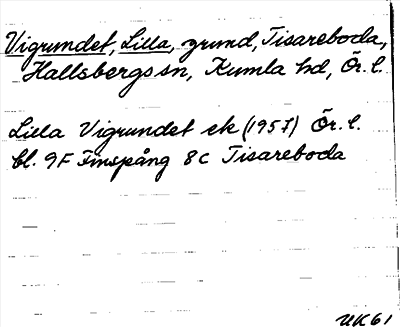 Vigrundet, Lilla, grund, Tisareboda,
Hallsbergs sn, Kumla hd, Ör. l.
Lilla Vigrundet ek (1957) Ör. l.
bl. 9F Finspång 8C Tisareboda
UK61